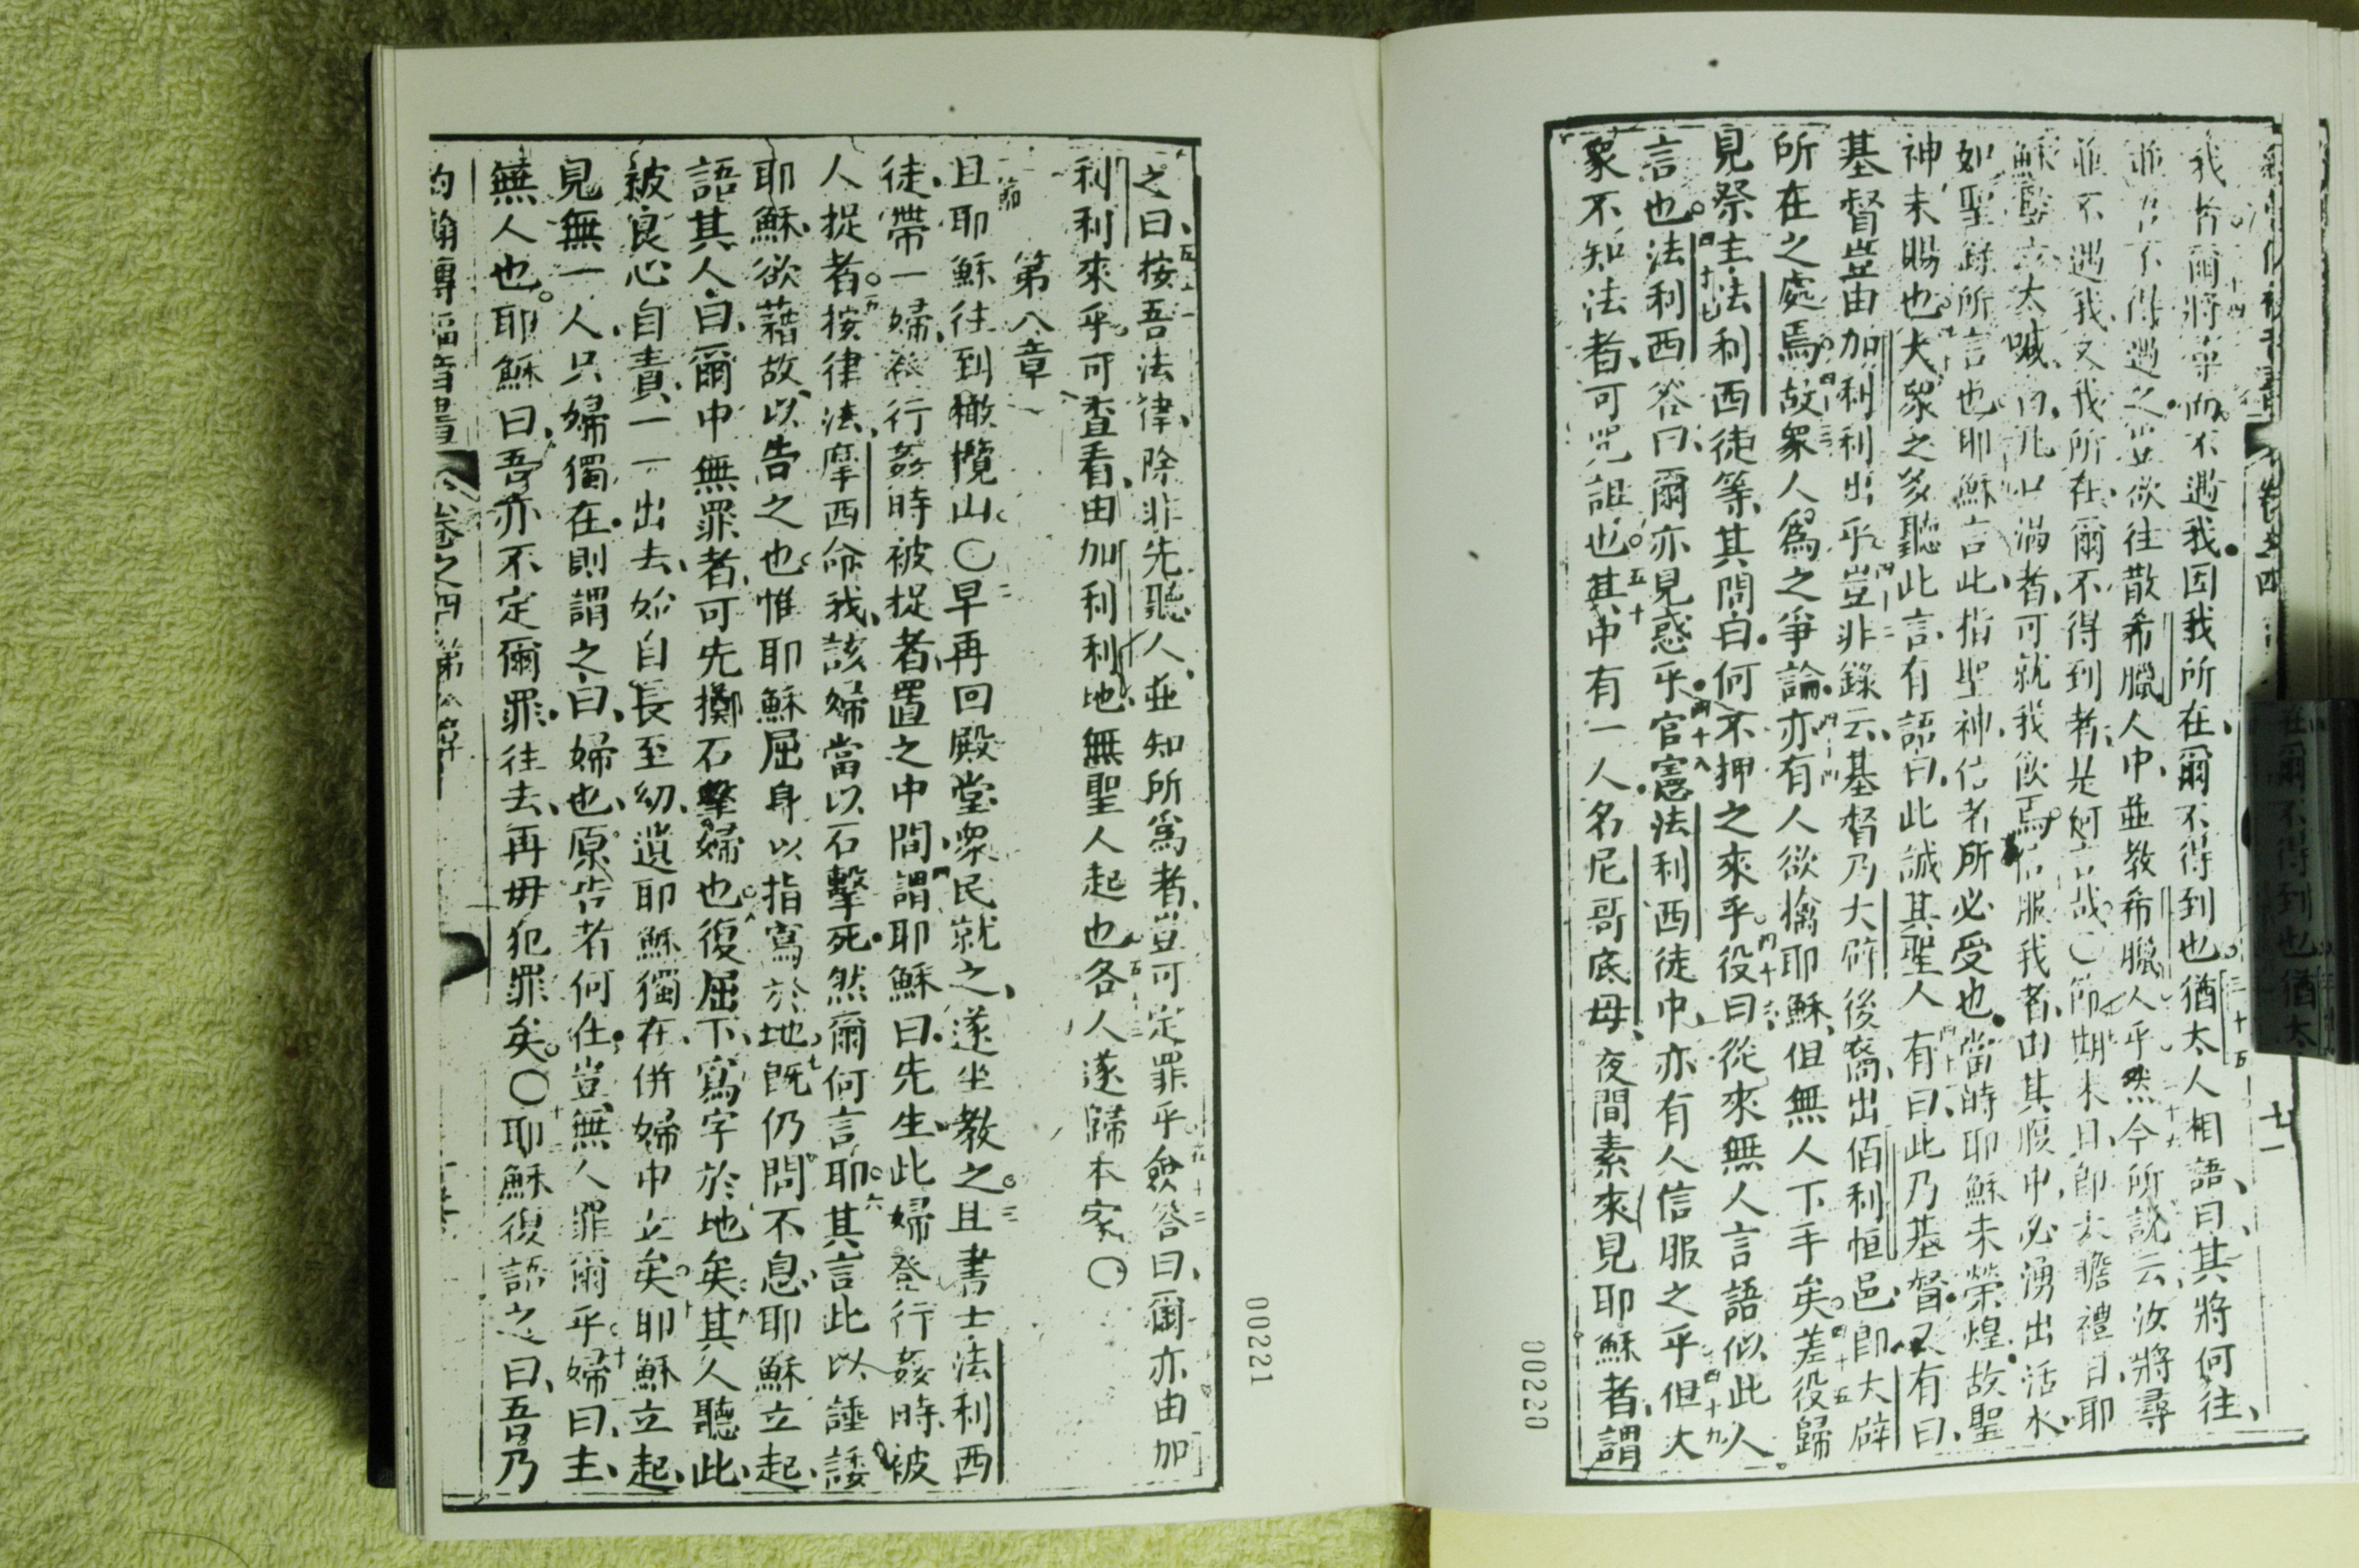 我者爾將尋而不遇我因我所在爾不得到也猶太人相語曰其將何往
人中並教希臘人乎然今所説云汝將尋
不遇我又我所在爾不得到者是何言哉〇節期末日即大瞻禮日耶
渴者可就我飲焉信服我者由其腹中必湧出活水
如聖錄所言也耶穌言此指聖神信者所必受也當時耶穌未榮煌故聖
神未賜也大衆之多聽此言有語曰此誠其聖人有曰此乃基督又有曰
基督豈由加利利出乎豈非錄云基督乃大辟後裔出佰利恒邑即大辟
所在之處焉故衆人爲之爭論亦有人欲擒耶穌但無人下手矣差役歸
見祭主法利西徒等其問曰何不押之來乎役曰從來無人言語似此人
言也法利西答曰爾亦見惑乎官憲法利西徒中亦有人信服之乎但大
衆不知法者可咒詛也其中有一人名尼哥底母夜間素來見耶穌者謂
七一
00220
之曰按吾法律除非先聽人並知所爲者豈可定罪乎僉答曰爾亦由加
利利來乎可查看由加利利地無聖人起也各人遂歸本家〇
第八章
節
且耶穌往到橄欖山〇早再回殿堂衆民就之遂坐教之且書士法利西
徒帶一婦行姦時被捉者置之中間謂耶穌曰先生此婦登行姦時被
人捉者按律法摩西命我該婦當以石擊死然爾何言耶其言此以諈諉
耶穌欲藉故以告之也惟耶穌屈身以指寫於地既仍問不息耶穌立起
語其人曰爾中無罪者可先擲石擊婦也復屈下寫字於地矣其人聽此
被良心自責一一出去始自長至幼遺耶穌獨在併婦中立矣耶穌立起
見無一人只婦獨在則謂之曰婦也原告者何在豈無人罪爾乎婦曰主
無人也耶穌曰吾亦不定爾罪往去再毋犯罪矣〇耶穌復語之曰吾乃
約翰傳福音書 卷之四 第八章
00221